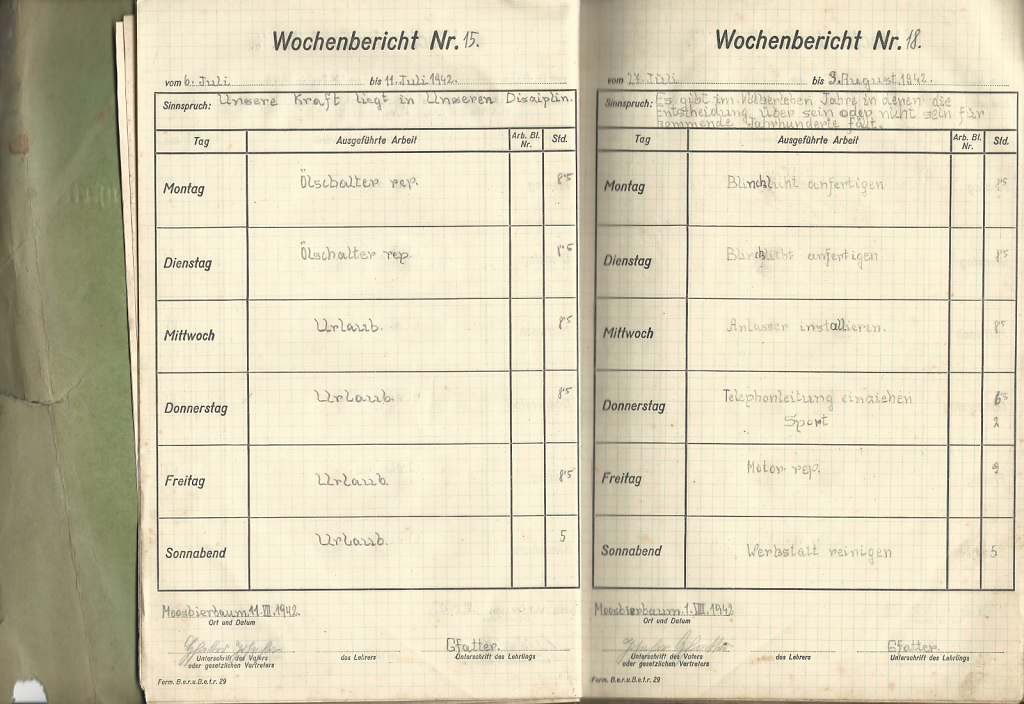 Wochenbericht Nr. 15.
vom 6. Juli bis 11. Juli 1942.
Sinnspruch: Unsere Kraft liegt in Unseren Disziplin.
Tag Ausgeführte Arbeit Arb. Bl. Nr. Std.
Montag Ölschalter rep. 8·5
Dienstag Ölschalter rep. 8·5
Mittwoch Urlaub. 8·5
Donnerstag Urlaub. 8·5
Freitag Urlaub. 8·5
Sonnabend Urlaub. 5
Moosbierbaum, 11.VII.1942.
Ort und Datum
Gfatter.
Unterschrift des Vaters des Lehrers Unterschrift des Lehrlings
oder gesetzlichen Vertreters
Form. B.e.r.u.B.e.t.r. 29
Wochenbericht Nr. 18.
vom 27. Juli bis 3. August 1942.
Sinnspruch: Es gibt im Völkerleben Jahre in denen die
Entscheidung über sein oder nicht sein für
kommende Jahrhunderte fällt.
Tag Ausgeführte Arbeit Arb. Bl. Nr. Std.
Montag Blinchlicht anfertigen 8·5
Dienstag Blinchlicht anfertigen 8·5
Mittwoch Anlasser installieren. 8·5
Donnerstag Telephonleitung einziehen 6·5
Sport 2
Freitag Motor rep. 9
Sonnabend Werkstatt reinigen 5
Moosbierbaum, 1.VIII.1942
Ort und Datum
Gfatter.
Unterschrift des Vaters des Lehrers Unterschrift des Lehrlings
oder gesetzlichen Vertreters
Form. B.e.r.u.B.e.t.r. 29